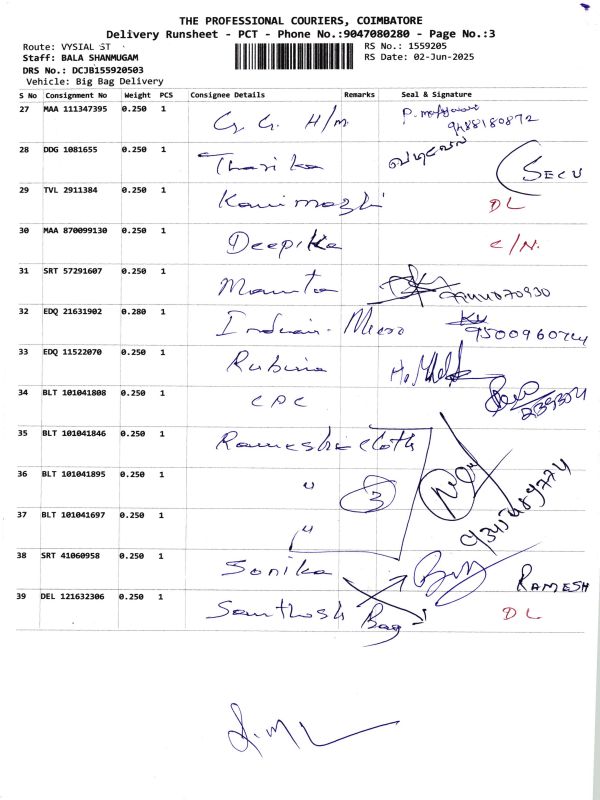 THE PROFESSIONAL COURIERS, COIMBATORE
Delivery Runsheet - PCT - Phone No.:9047080280 - Page No.:3
Route: VYSIAL ST
RS No.: 1559205
Staff: BALA SHANMUGAM
RS Date: 02-Jun-2025
DRS No.: DCJB155920503
Vehicle: Big Bag Delivery
S No Consignment No Weight PCS Consignee Details Remarks Seal & Signature
27 MAA 111347395 0.250 1 G. G. H/m
9488180872
28 DDG 1081655 0.250 1 Tharika வடிவேல் SECU
29 TVL 2911384 0.250 1 Kanimozhi DL
30 MAA 870099130 0.250 1 Deepika C/N.
31 SRT 57291607 0.250 1 Mamta
32 EDQ 21631902 0.280 1 Indian Micro
33 EDQ 11522070 0.250 1 Rubina
34 BLT 101041808 0.250 1 CPC
35 BLT 101041846 0.250 1 Ramesh cloth
36 BLT 101041895 0.250 1 " 3
37 BLT 101041697 0.250 1 "
38 SRT 41060958 0.250 1 Sonika RAMESH
39 DEL 121632306 0.250 1 Santhosh Bag DL